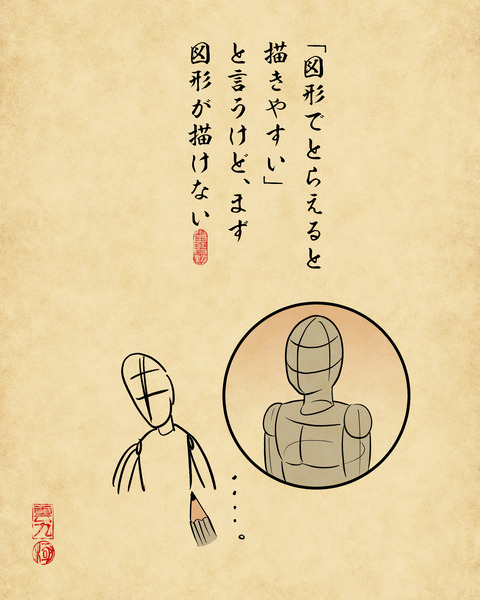 「図形でとらえると
描きやすい」
と言うけど、まず
図形が描けない